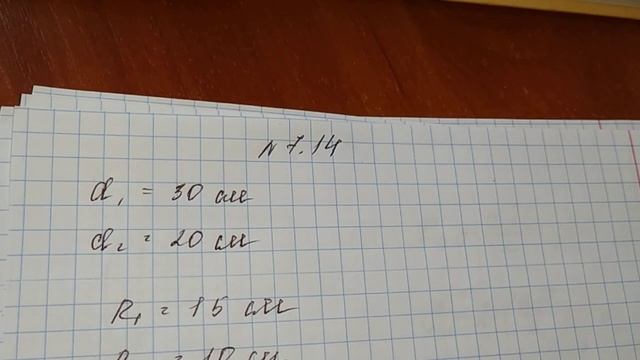 N 7.14
d₁ = 30 см
d₂ = 20 см
R₁ = 15 см
= 10 см